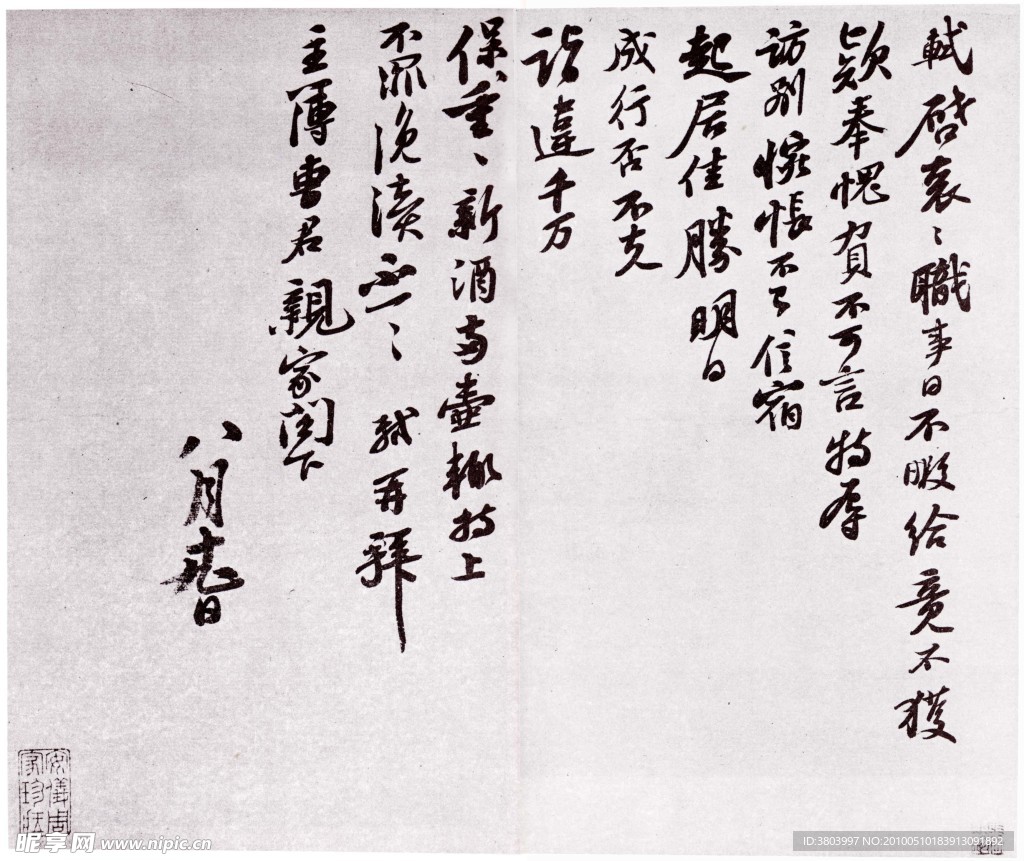 軾啓袞〻職事日不暇給竟不獲
款奉愧負不可言特辱
訪別惋悵不已信宿
起居佳勝明日
成行否不克
詣違千万
保重〻新酒兩壺輒持上
不罪浼瀆不一〻軾再拜
主簿曹君親家閣下
八月日
安儀周家珍藏
昵享网 www.nipic.cn
ID:3803997 NO:20100510183913091892